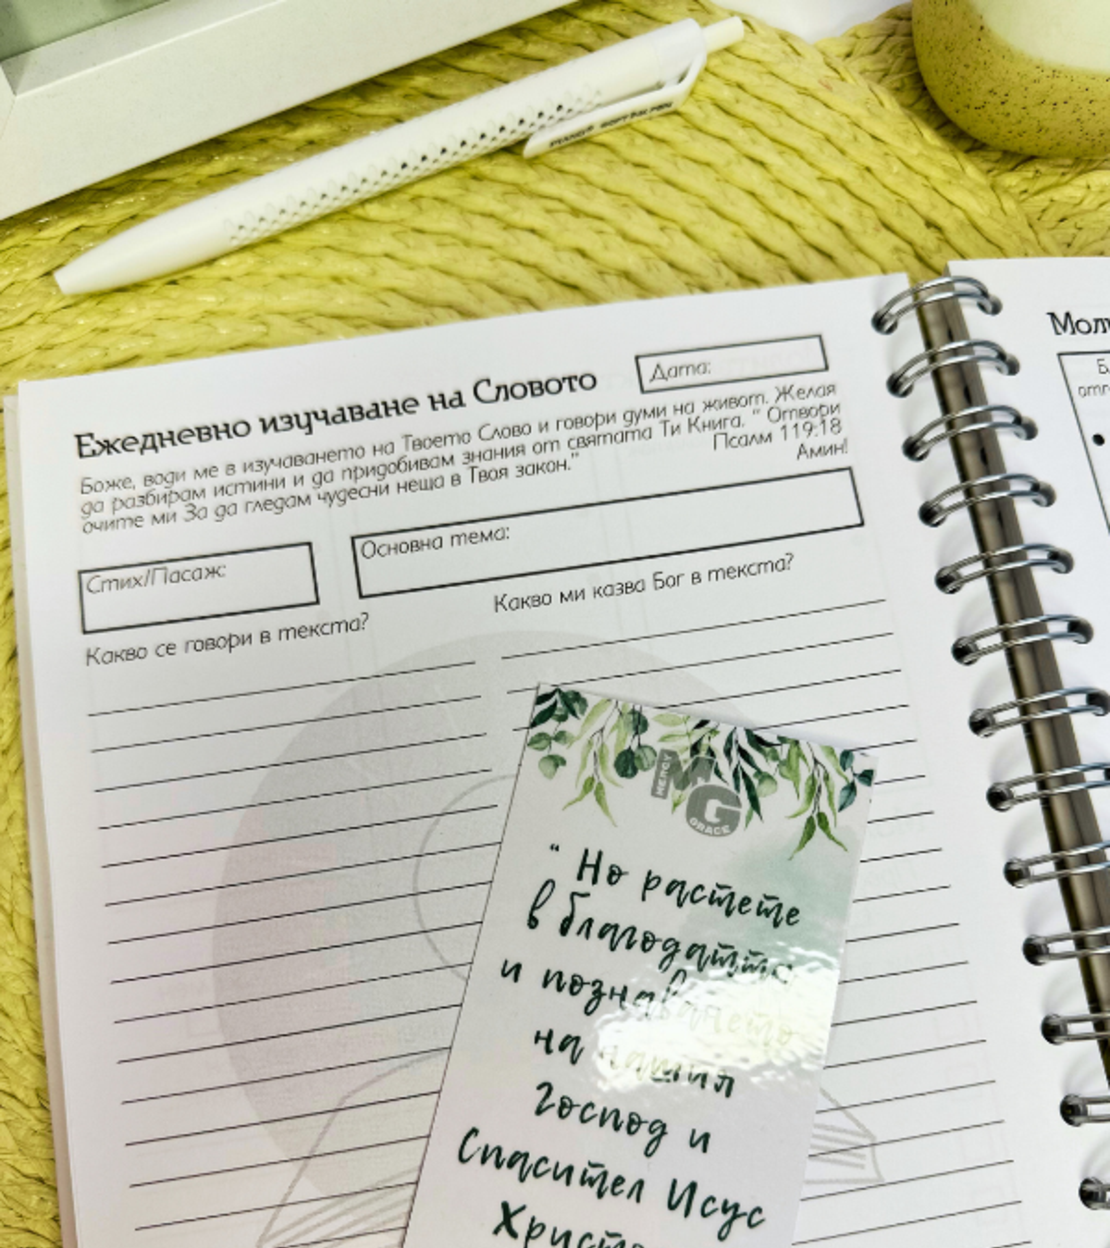 Ежедневно изучаване на Словото
Дата:
Боже, води ме в изучаването на Твоето Слово и говори думи на живот. Желая
да разбирам истини и да придобивам знания от святата Ти Книга. " Отвори
очите ми За да гледам чудесни неща в Твоя закон."
Псалм 119:18
Амин!
Стих/Пасаж:
Основна тема:
Какво се говори в текста?
Какво ми казва Бог в текста?
MERCY
MG
GRACE
" Но растете
в благодатта
и познаването
на нашия
Господ и
Спасител Исус